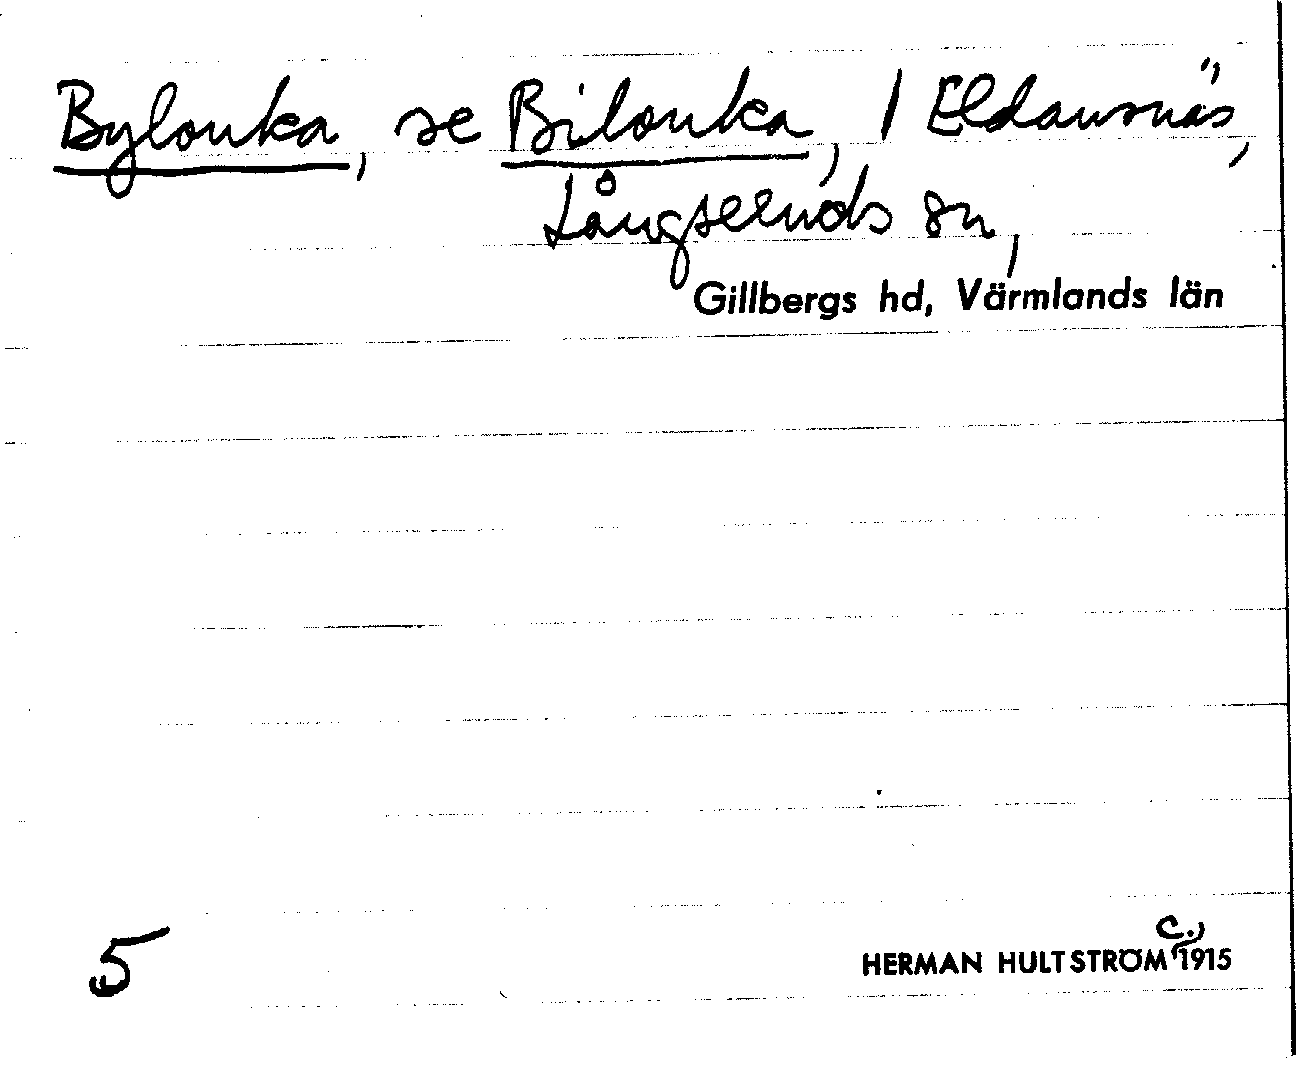 Bylonka, se Bilonka, 1 Eldansnäs,
Långseruds sn,
Gillbergs hd, Värmlands län
5
HERMAN HULTSTRÖM C., 1915